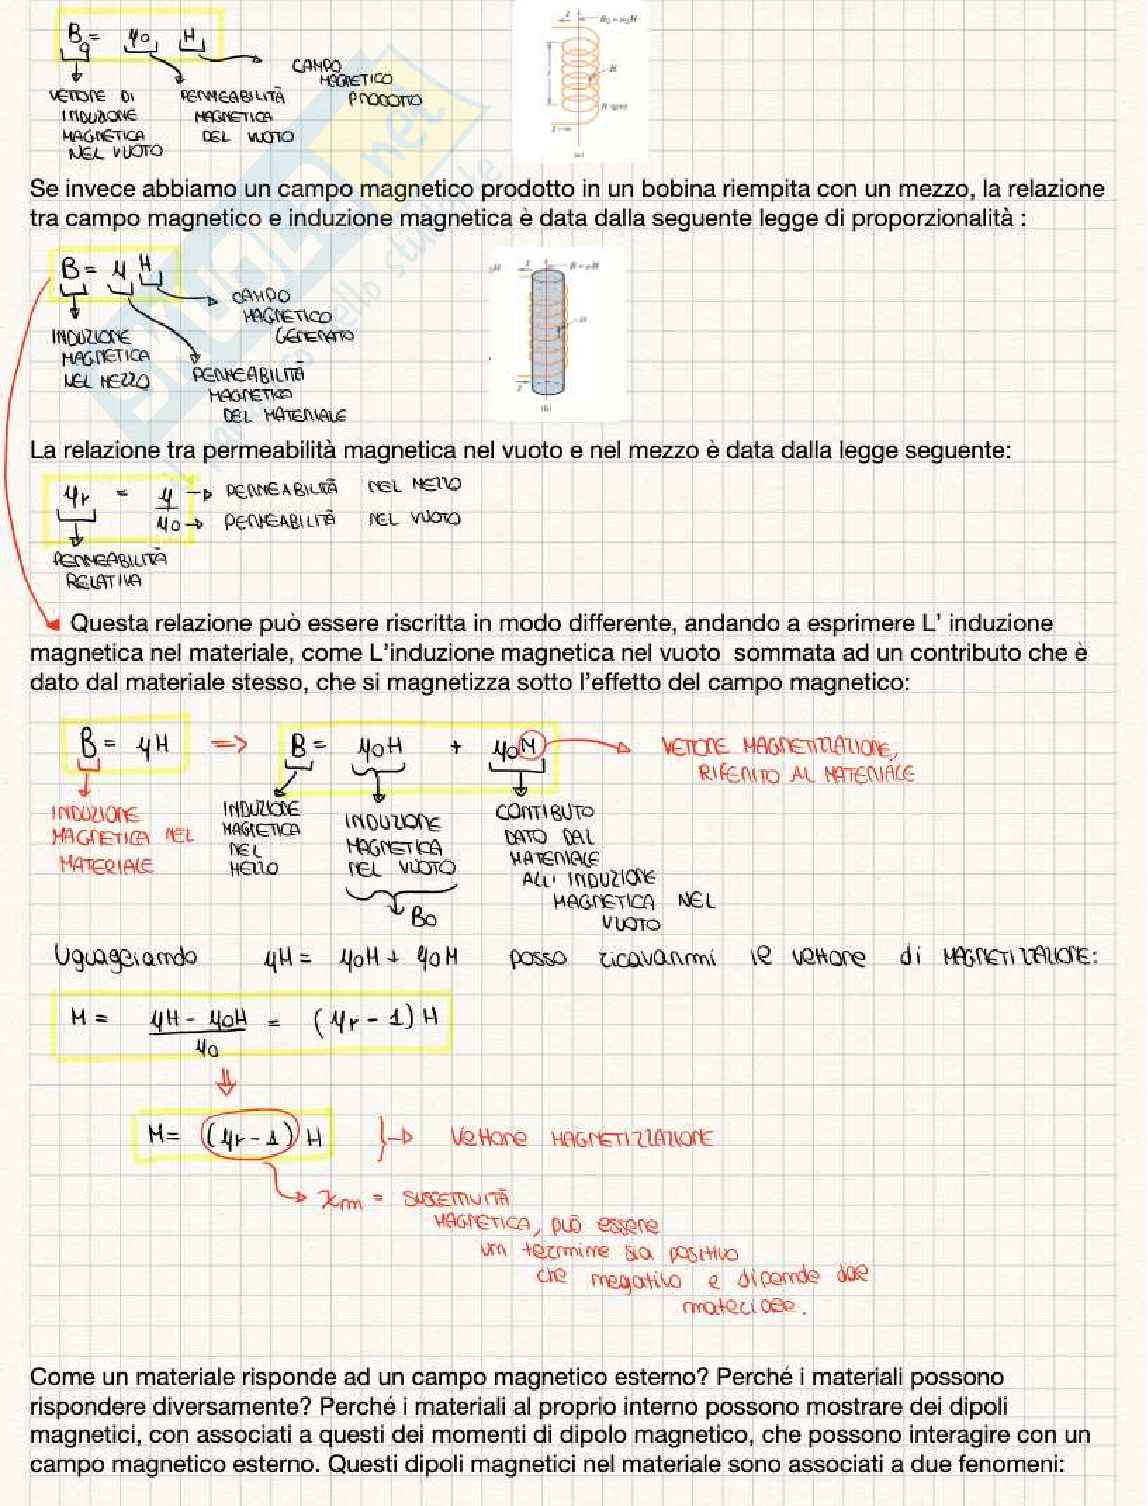 B₀ = μ₀ H
CAMPO
MAGNETICO
PRODOTTO
VETTORE DI
INDUZIONE
MAGNETICA
NEL VUOTO
PERMEABILITÀ
MAGNETICA
DEL VUOTO
B₀ = μ₀H
Se invece abbiamo un campo magnetico prodotto in un bobina riempita con un mezzo, la relazione
tra campo magnetico e induzione magnetica è data dalla seguente legge di proporzionalità :
B = μ H
CAMPO
MAGNETICO
GENERATO
INDUZIONE
MAGNETICA
NEL MEZZO
PERMEABILITÀ
MAGNETICO
DEL MATERIALE
La relazione tra permeabilità magnetica nel vuoto e nel mezzo è data dalla legge seguente:
μr = μ → PERMEABILITÀ NEL MEZZO
μ₀ → PERMEABILITÀ NEL VUOTO
PERMEABILITÀ
RELATIVA
Questa relazione può essere riscritta in modo differente, andando a esprimere L' induzione
magnetica nel materiale, come L'induzione magnetica nel vuoto sommata ad un contributo che è
dato dal materiale stesso, che si magnetizza sotto l'effetto del campo magnetico:
B = μH ⇒ B = μ₀H + μ₀M
VETTORE MAGNETIZZAZIONE,
RIFERITO AL MATERIALE
INDUZIONE
MAGNETICA NEL
MATERIALE
INDUZIONE
MAGNETICA
NEL
MEZZO
INDUZIONE
MAGNETICA
NEL VUOTO
B₀
CONTIBUTO
DATO DAL
MATERIALE
ALL' INDUZIONE
MAGNETICA NEL
VUOTO
Uguagliando μH = μ₀H + μ₀M posso ricavarmi il vettore di MAGNETIZZAZIONE:
M = μH - μ₀H = (μr - 1) H
μ₀
M = (μr - 1) H } → Vettore MAGNETIZZAZIONE
χm = SUSCETTIVITÀ
MAGNETICA, può essere
un termine sia positivo
che negativo e dipende dal
materiale.
Come un materiale risponde ad un campo magnetico esterno? Perché i materiali possono
rispondere diversamente? Perché i materiali al proprio interno possono mostrare dei dipoli
magnetici, con associati a questi dei momenti di dipolo magnetico, che possono interagire con un
campo magnetico esterno. Questi dipoli magnetici nel materiale sono associati a due fenomeni: